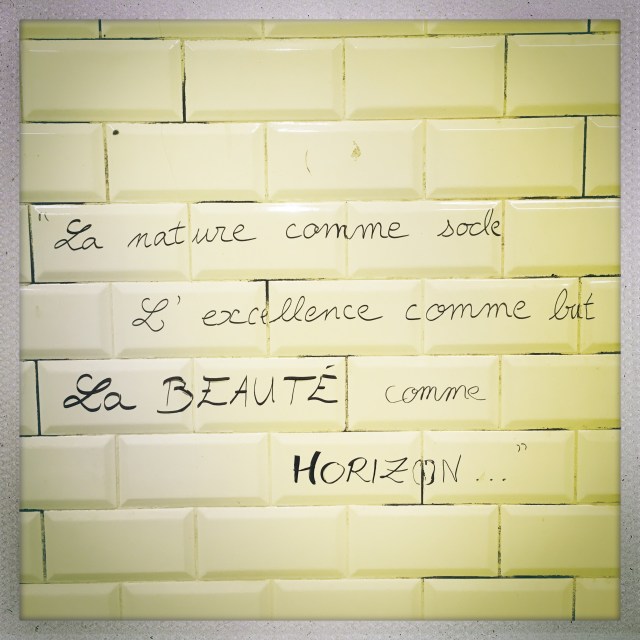 "La nature comme socle
L'excellence comme but
La BEAUTÉ comme
HORIZON..."